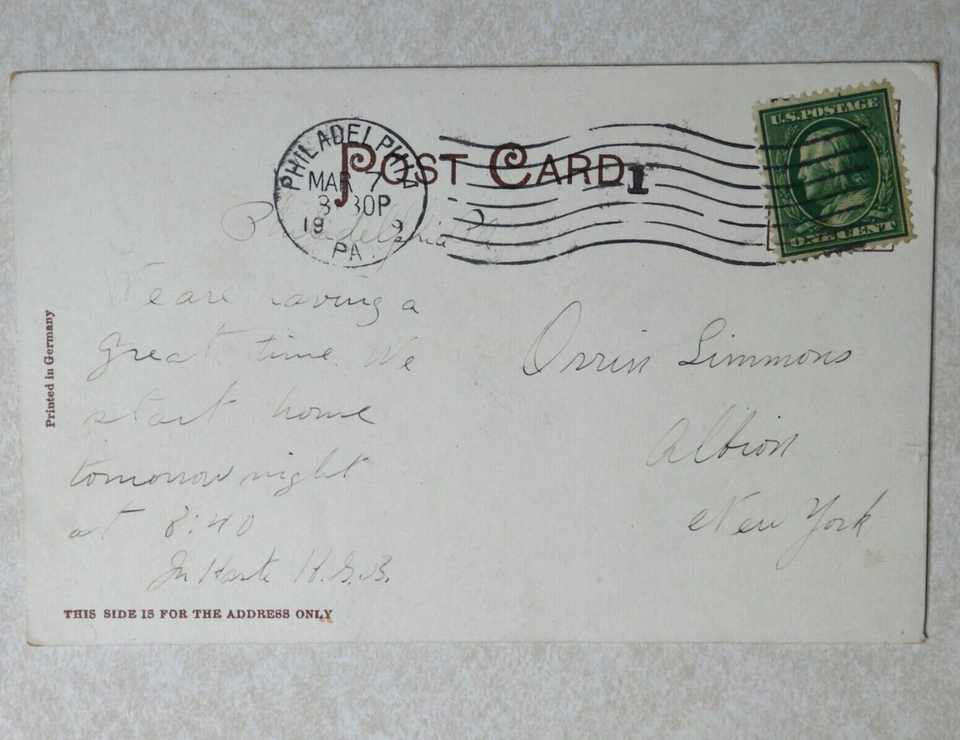 POST CARD
PHILADELPHIA
MAR 7
30P
19 9
PA
1
U.S. POSTAGE
ONE CENT
Philadelphia Pa
We are having a
great time. We
start home
tomorrow night
at 8:40
In Haste H.G.B.
Orrin Simmons
Albion
New York
Printed in Germany
THIS SIDE IS FOR THE ADDRESS ONLY